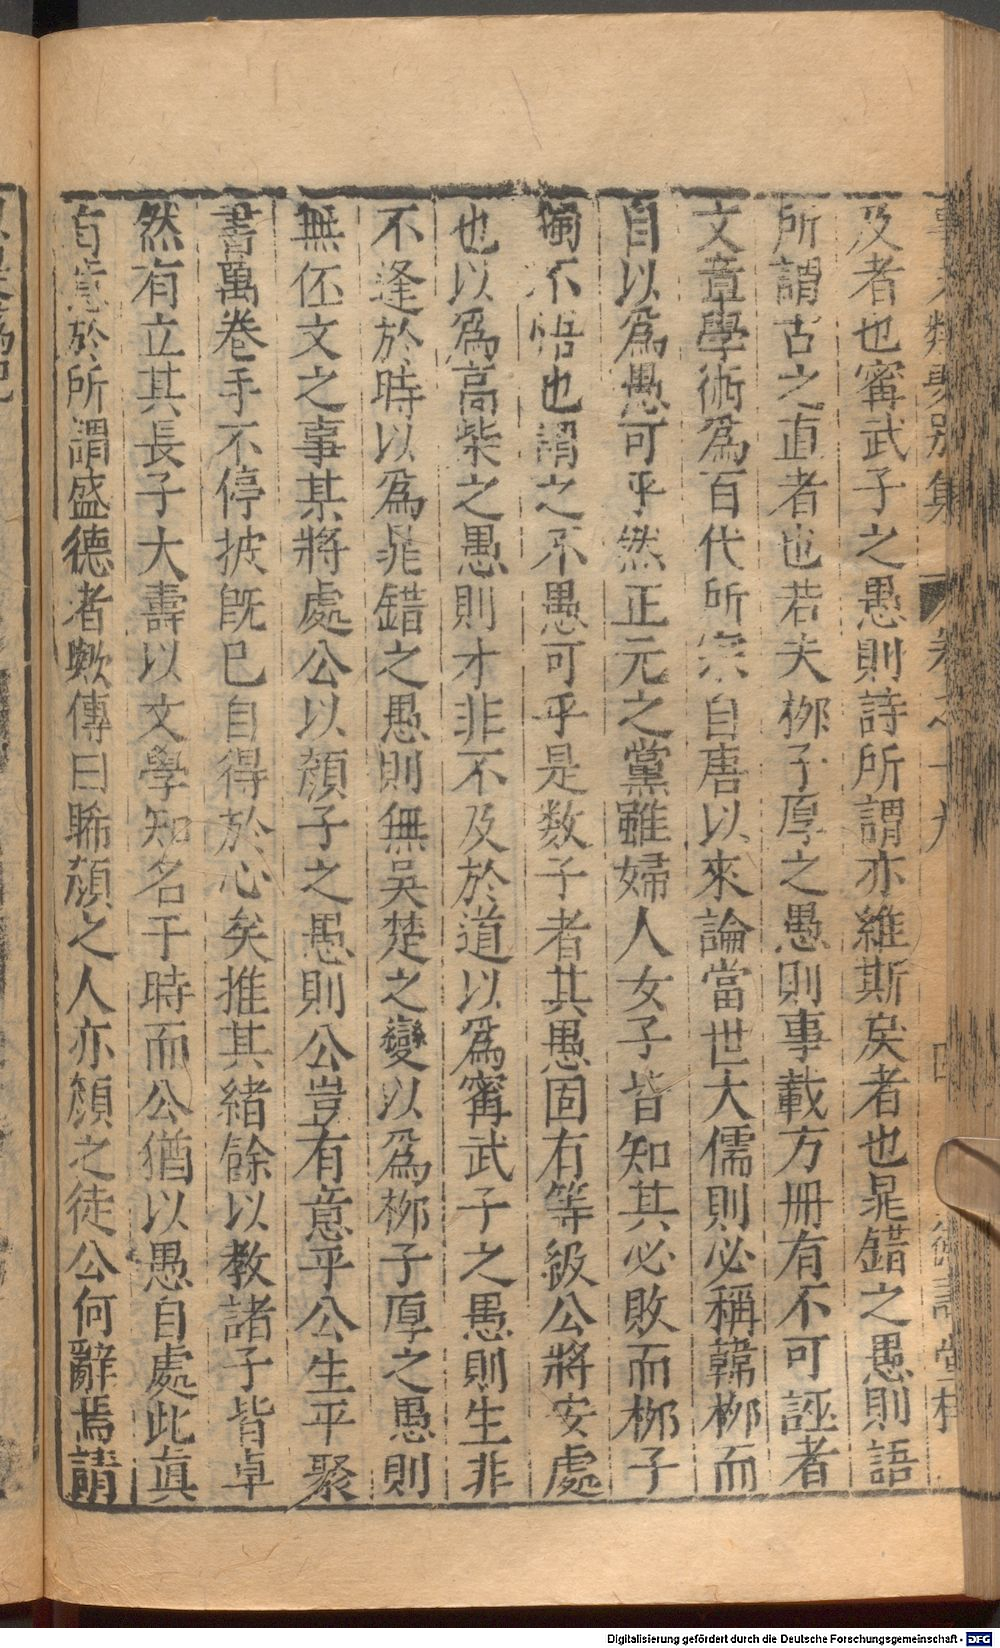 及者也甯武子之愚則詩所謂亦維斯矣者也鼂錯之愚則語
所謂古之直者也若夫桞子厚之愚則事載方冊有不可誣者
文章學術爲百代所宗自唐以來論當世大儒則必稱韓桞而
自以爲愚可乎然正元之黨雖婦人女子皆知其必敗而桞子
獨不悟也謂之不愚可乎是数子者其愚固有等級公將安處
也以爲高柴之愚則才非不及於道以爲甯武子之愚則生非
不逢於時以爲鼂錯之愚則無吳楚之變以爲桞子厚之愚則
無伾文之事某將處公以顔子之愚則公豈有意乎公生平聚
書萬卷手不停披旣已自得於心矣推其緒餘以教諸子皆卓
然有立其長子大壽以文學知名于時而公猶以愚自處此真
有意於所謂盛德者歟傳曰睎顔之人亦顔之徒公何辭焉請
Digitalisierung gefördert durch die Deutsche Forschungsgemeinschaft - DFG